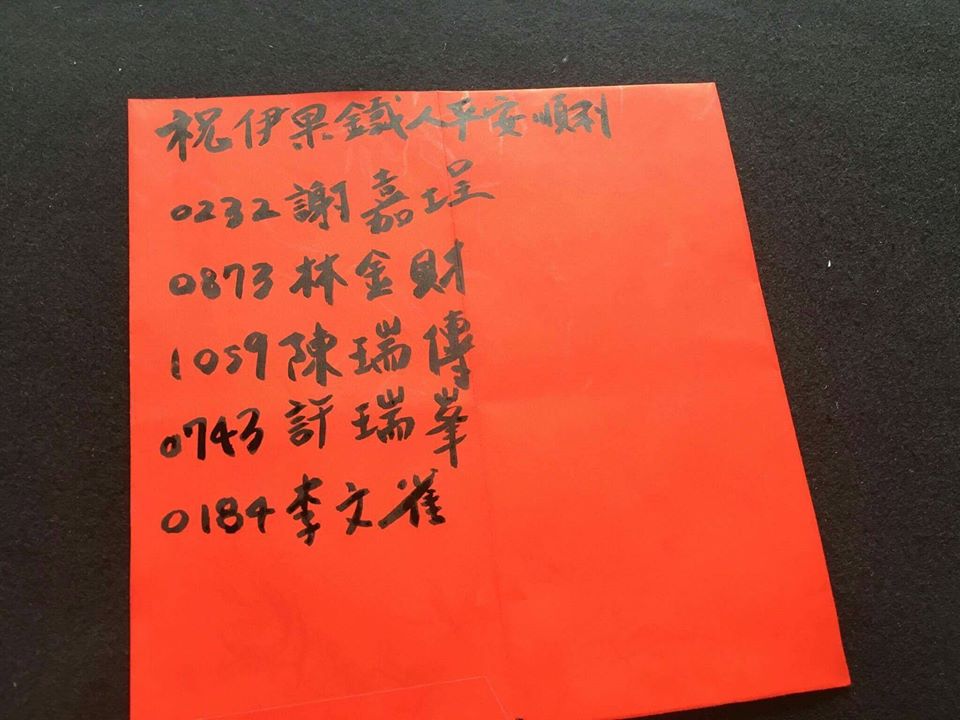 祝伊果鐵人平安順利
0232謝嘉埕
0873林金財
1059陳瑞傳
0743許瑞峯
0184李文雀